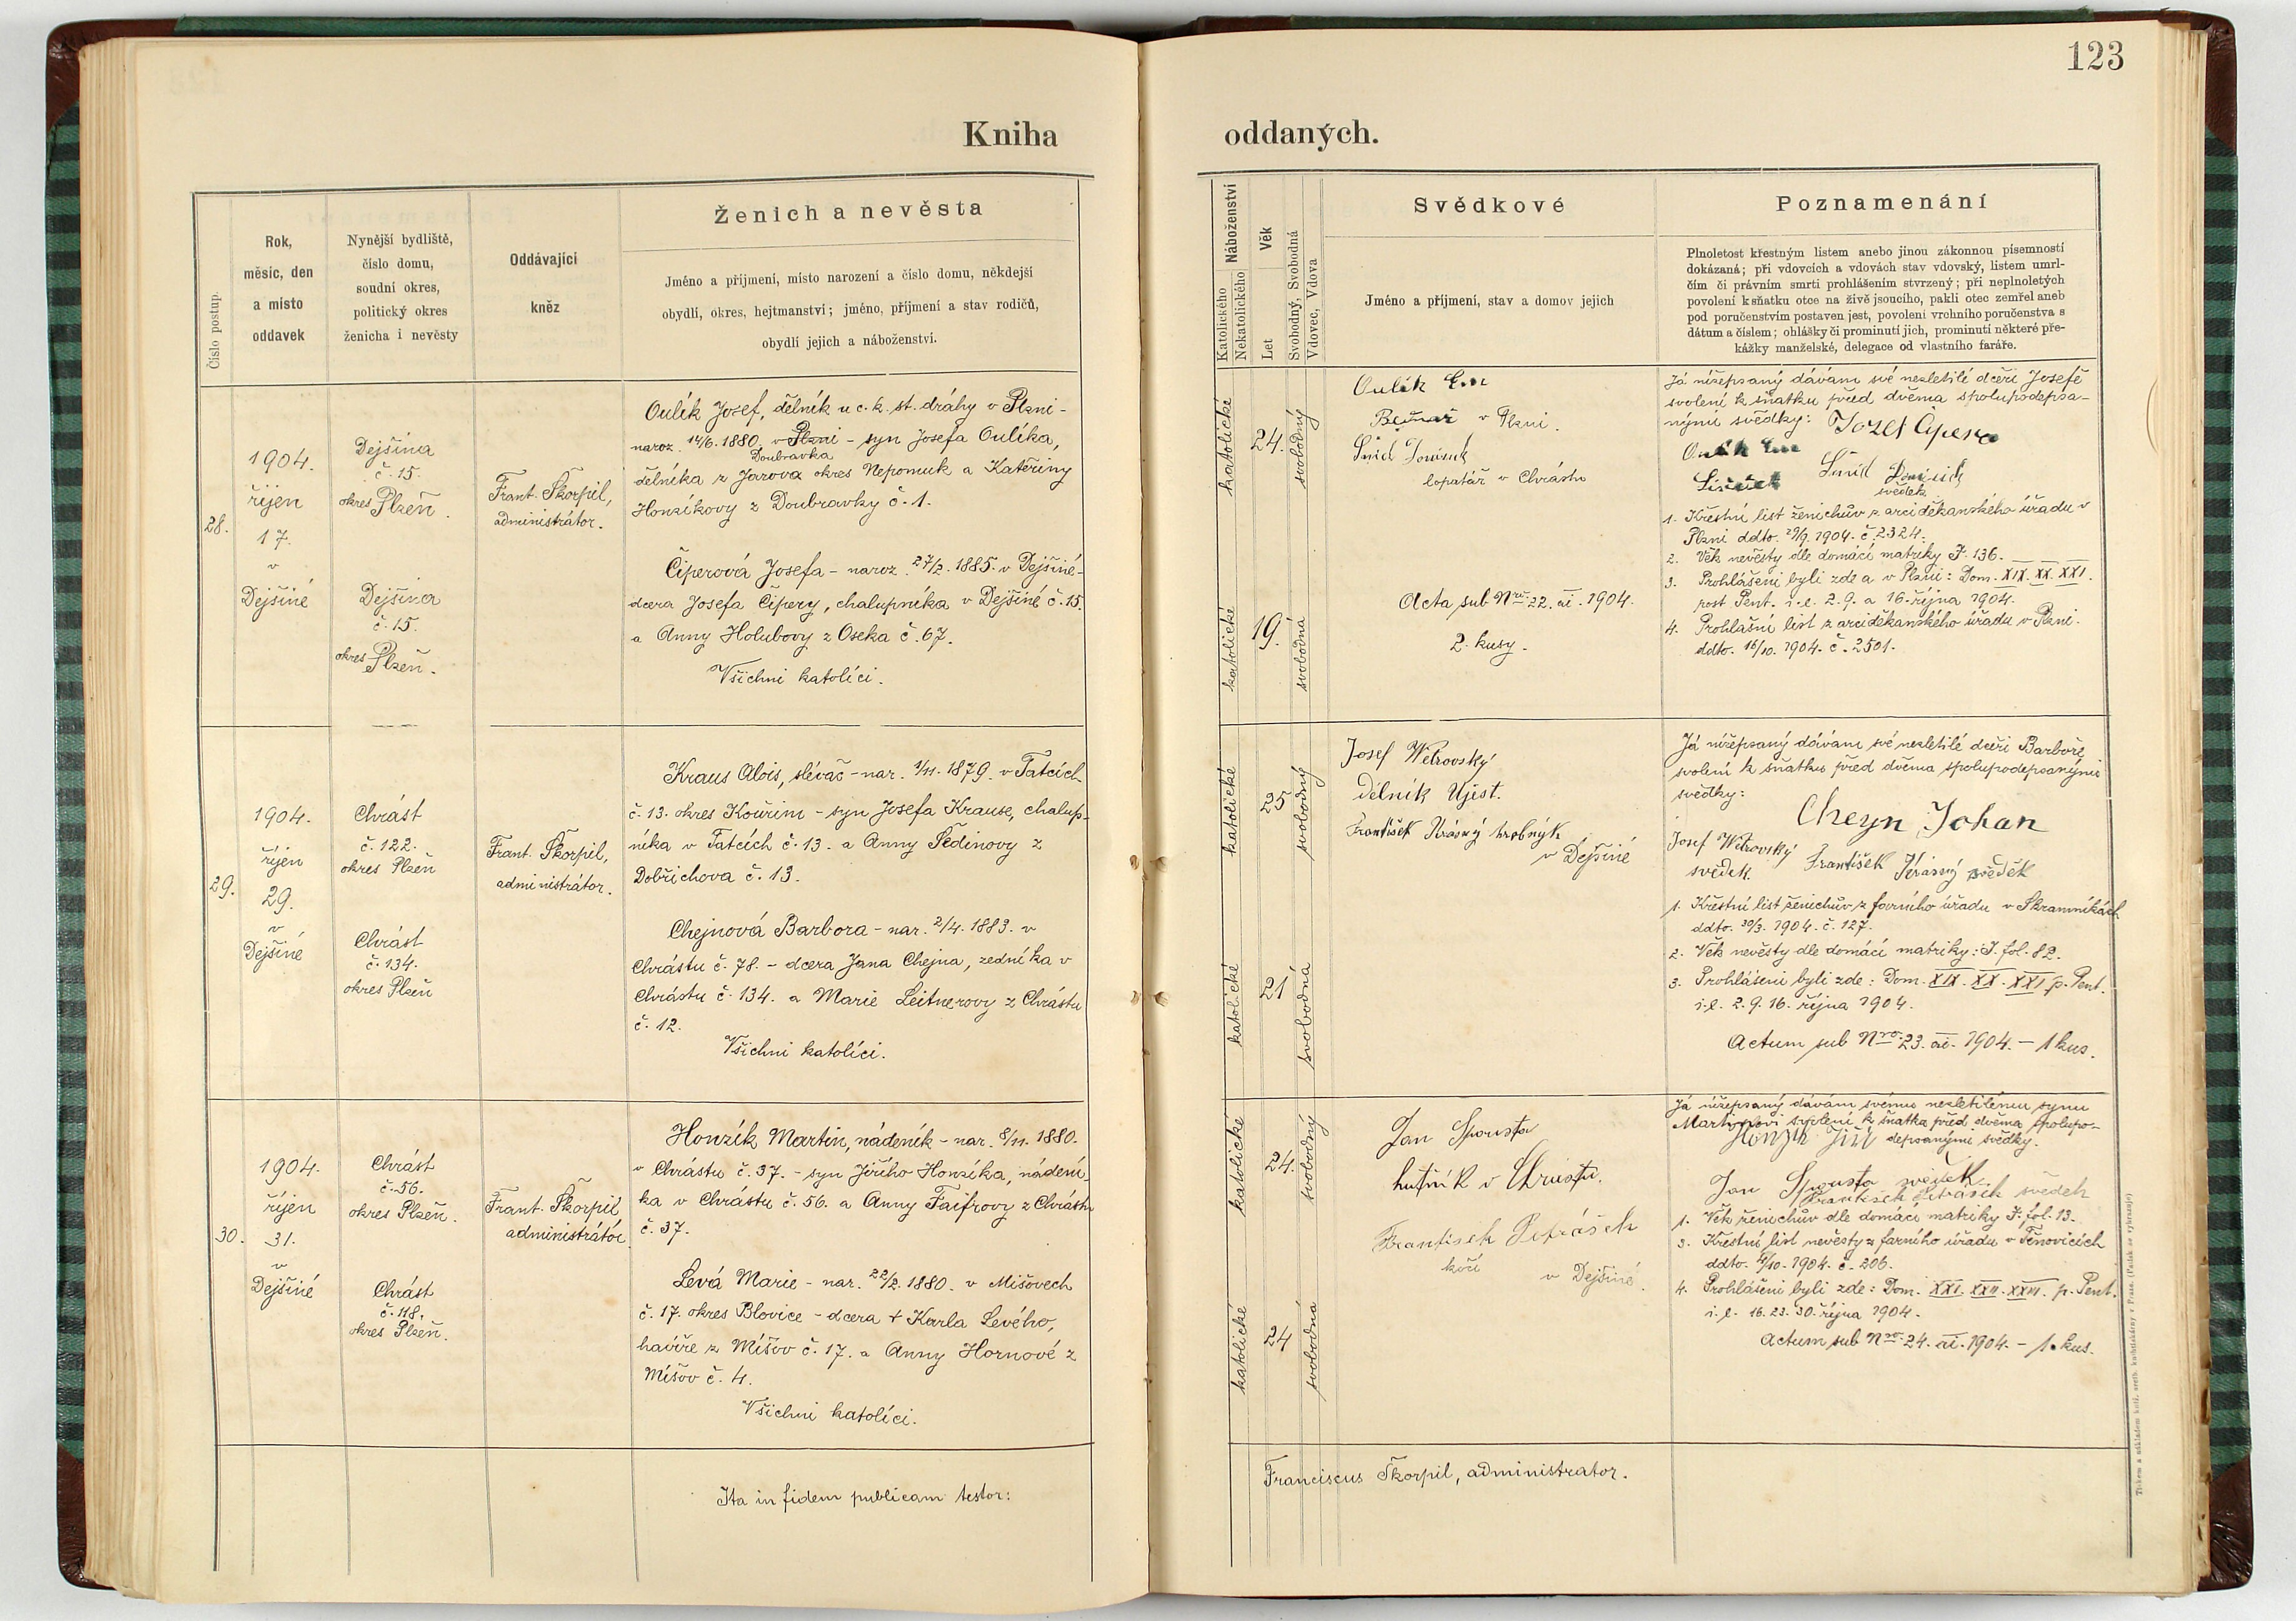 123
Kniha
oddaných.
Číslo postup.
Rok,
měsíc, den
a místo
oddavek
Nynější bydliště,
číslo domu,
soudní okres,
politický okres
ženicha i nevěsty
Oddávající
kněz
Ženich a nevěsta
Jméno a příjmení, místo narození a číslo domu, někdejší
obydlí, okres, hejtmanství; jméno, příjmení a stav rodičů,
obydlí jejich a náboženství.
28.
1904.
říjen
17.
v
Dejšině
Dejšina
č. 15.
okres Plzeň.
Dejšina
č. 15.
okres Plzeň.
Frant. Škorpil,
administrátor.
Oulík Josef, dělník u c. k. st. dráhy v Plzni -
naroz. 14/6. 1880. v Plzni - syn Josefa Oulíka,
Doubravka
dělníka z Jarova okres Nepomuk a Kateřiny
Honzíkovy z Doubravky č. 1.
Čiperová Josefa - naroz. 27/2. 1885. v Dejšině -
dcera Josefa Čipery, chalupníka v Dejšině č. 15.
a Anny Holubovy z Oseka č. 67.
Všichni katolíci.
29.
1904.
říjen
29.
v
Dejšině
Chrást
č. 122.
okres Plzeň
Chrást
č. 134.
okres Plzeň
Frant. Škorpil,
administrátor.
Kraus Alois, slévač - nar. 1/11. 1879. v Tatcích
č. 13. okres Kouřim - syn Josefa Krause, chalup-
níka v Tatcích č. 13. a Anny Šedinovy z
Dobřichova č. 13.
Chejnová Barbora - nar. 2/4. 1883. v
Chrástu č. 78. - dcera Jana Chejna, zedníka v
Chrástu č. 134. a Marie Leitnerovy z Chrástu
č. 12.
Všichni katolíci.
30.
1904.
říjen
31.
v
Dejšině
Chrást
č. 56.
okres Plzeň.
Chrást
č. 118.
okres Plzeň.
Frant. Škorpil
administrátor.
Honzík Martin, nádeník - nar. 8/11. 1880.
v Chrástu č. 37. - syn Jiřího Honzíka, nádení-
ka v Chrástu č. 56. a Anny Faifrovy z Chrástu
č. 37.
Levá Marie - nar. 22/2. 1880. v Mišovech
č. 17. okres Blovice - dcera + Karla Levého,
havíře z Míšov č. 17. a Anny Hornové z
Míšov č. 4.
Všichni katolíci.
Ita in fidem publicam testor:
Náboženství
Katolického
Nekatolického
Věk
Let
Svobodný, Svobodná
Vdovec, Vdova
Svědkové
Jméno a příjmení, stav a domov jejich
Poznamenání
Plnoletost křestným listem anebo jinou zákonnou písemností
dokázaná; při vdovcích a vdovách stav vdovský, listem umrl-
čím či právním smrti prohlášením stvrzený; při neplnoletých
povolení k sňatku otce na živě jsoucího, pakli otec zemřel aneb
pod poručenstvím postaven jest, povolení vrchního poručenstva s
dátum a číslem; ohlášky či prominutí jich, prominutí některé pře-
kážky manželské, delegace od vlastního faráře.
katolické
24.
svobodný
katolické
19.
svobodná
Oulík
v Plzni.
Šmíd
lopatář v Chrástu
Acta sub Nro. 22. ai. 1904.
2. kusy.
Já nížepsaný dávám své nezletilé dceři Josefě
svolení k sňatku před dvěma spolupodepsa-
nými svědky: Jozef Čipera
Oulík
Šmíd
svědek
1. Křestní list ženichův z arciděkanského úřadu v
Plzni ddto. 29/9. 1904. č. 2324.
2. Věk nevěsty dle domácí matriky I. 136.
3. Prohlášeni byli zde a v Plzni: Dom. XIX. XX. XXI.
post Pent. i. e. 2. 9. a 16. října 1904.
4. Prohlášní list z arciděkanského úřadu v Plzni.
ddto. 16/10. 1904. č. 2501.
katolické
25
svobodný
katolické
21
svobodná
Josef Wětrovský
dělník Ujest.
František Krásný hrobnýk
v Dejšině
Já nížepsaný dávám své nezletilé dceři Barboře
svolení k sňatku před dvěma spolupodepsanými
svědky:
Cheyn Johan
Josef Wětrovský
svědek.
František Krásný svědek
1. Křestní list ženichův z farního úřadu v Skramníkách
ddto. 30/3. 1904. č. 127.
2. Věk nevěsty dle domácí matriky: I. fol. 82.
3. Prohlášeni byli zde: Dom. XIX. XX. XXI p. Pent.
i. e. 2. 9. 16. října 1904.
Actum sub Nro. 23. ai. 1904. - 1 kus.
katolické
24.
svobodný
katolické
24
svobodná
Jan Spousta
hutník v Chrástu.
Frantisek Petrásek
kočí
v Dejšině.
Já nížepsaný dávám svému nezletilému synu
Martinovi svolení k sňatku před dvěma spolupo-
Honzík Jiří depsanými svědky.
Jan Spousta svědek
Frantisek Petrásek svědek
1. Věk ženichův dle domácí matriky I. fol. 13.
3. Křestní list nevěsty z farního úřadu v Těnovicích
ddto. 4/10. 1904. č. 206.
4. Prohlášeni byli zde: Dom. XXI. XXII. XXIII. p. Pent.
i. e. 16. 23. 30. října 1904.
Actum sub Nro. 24. ai. 1904. - 1. kus.
Franciscus Škorpil, administrator.